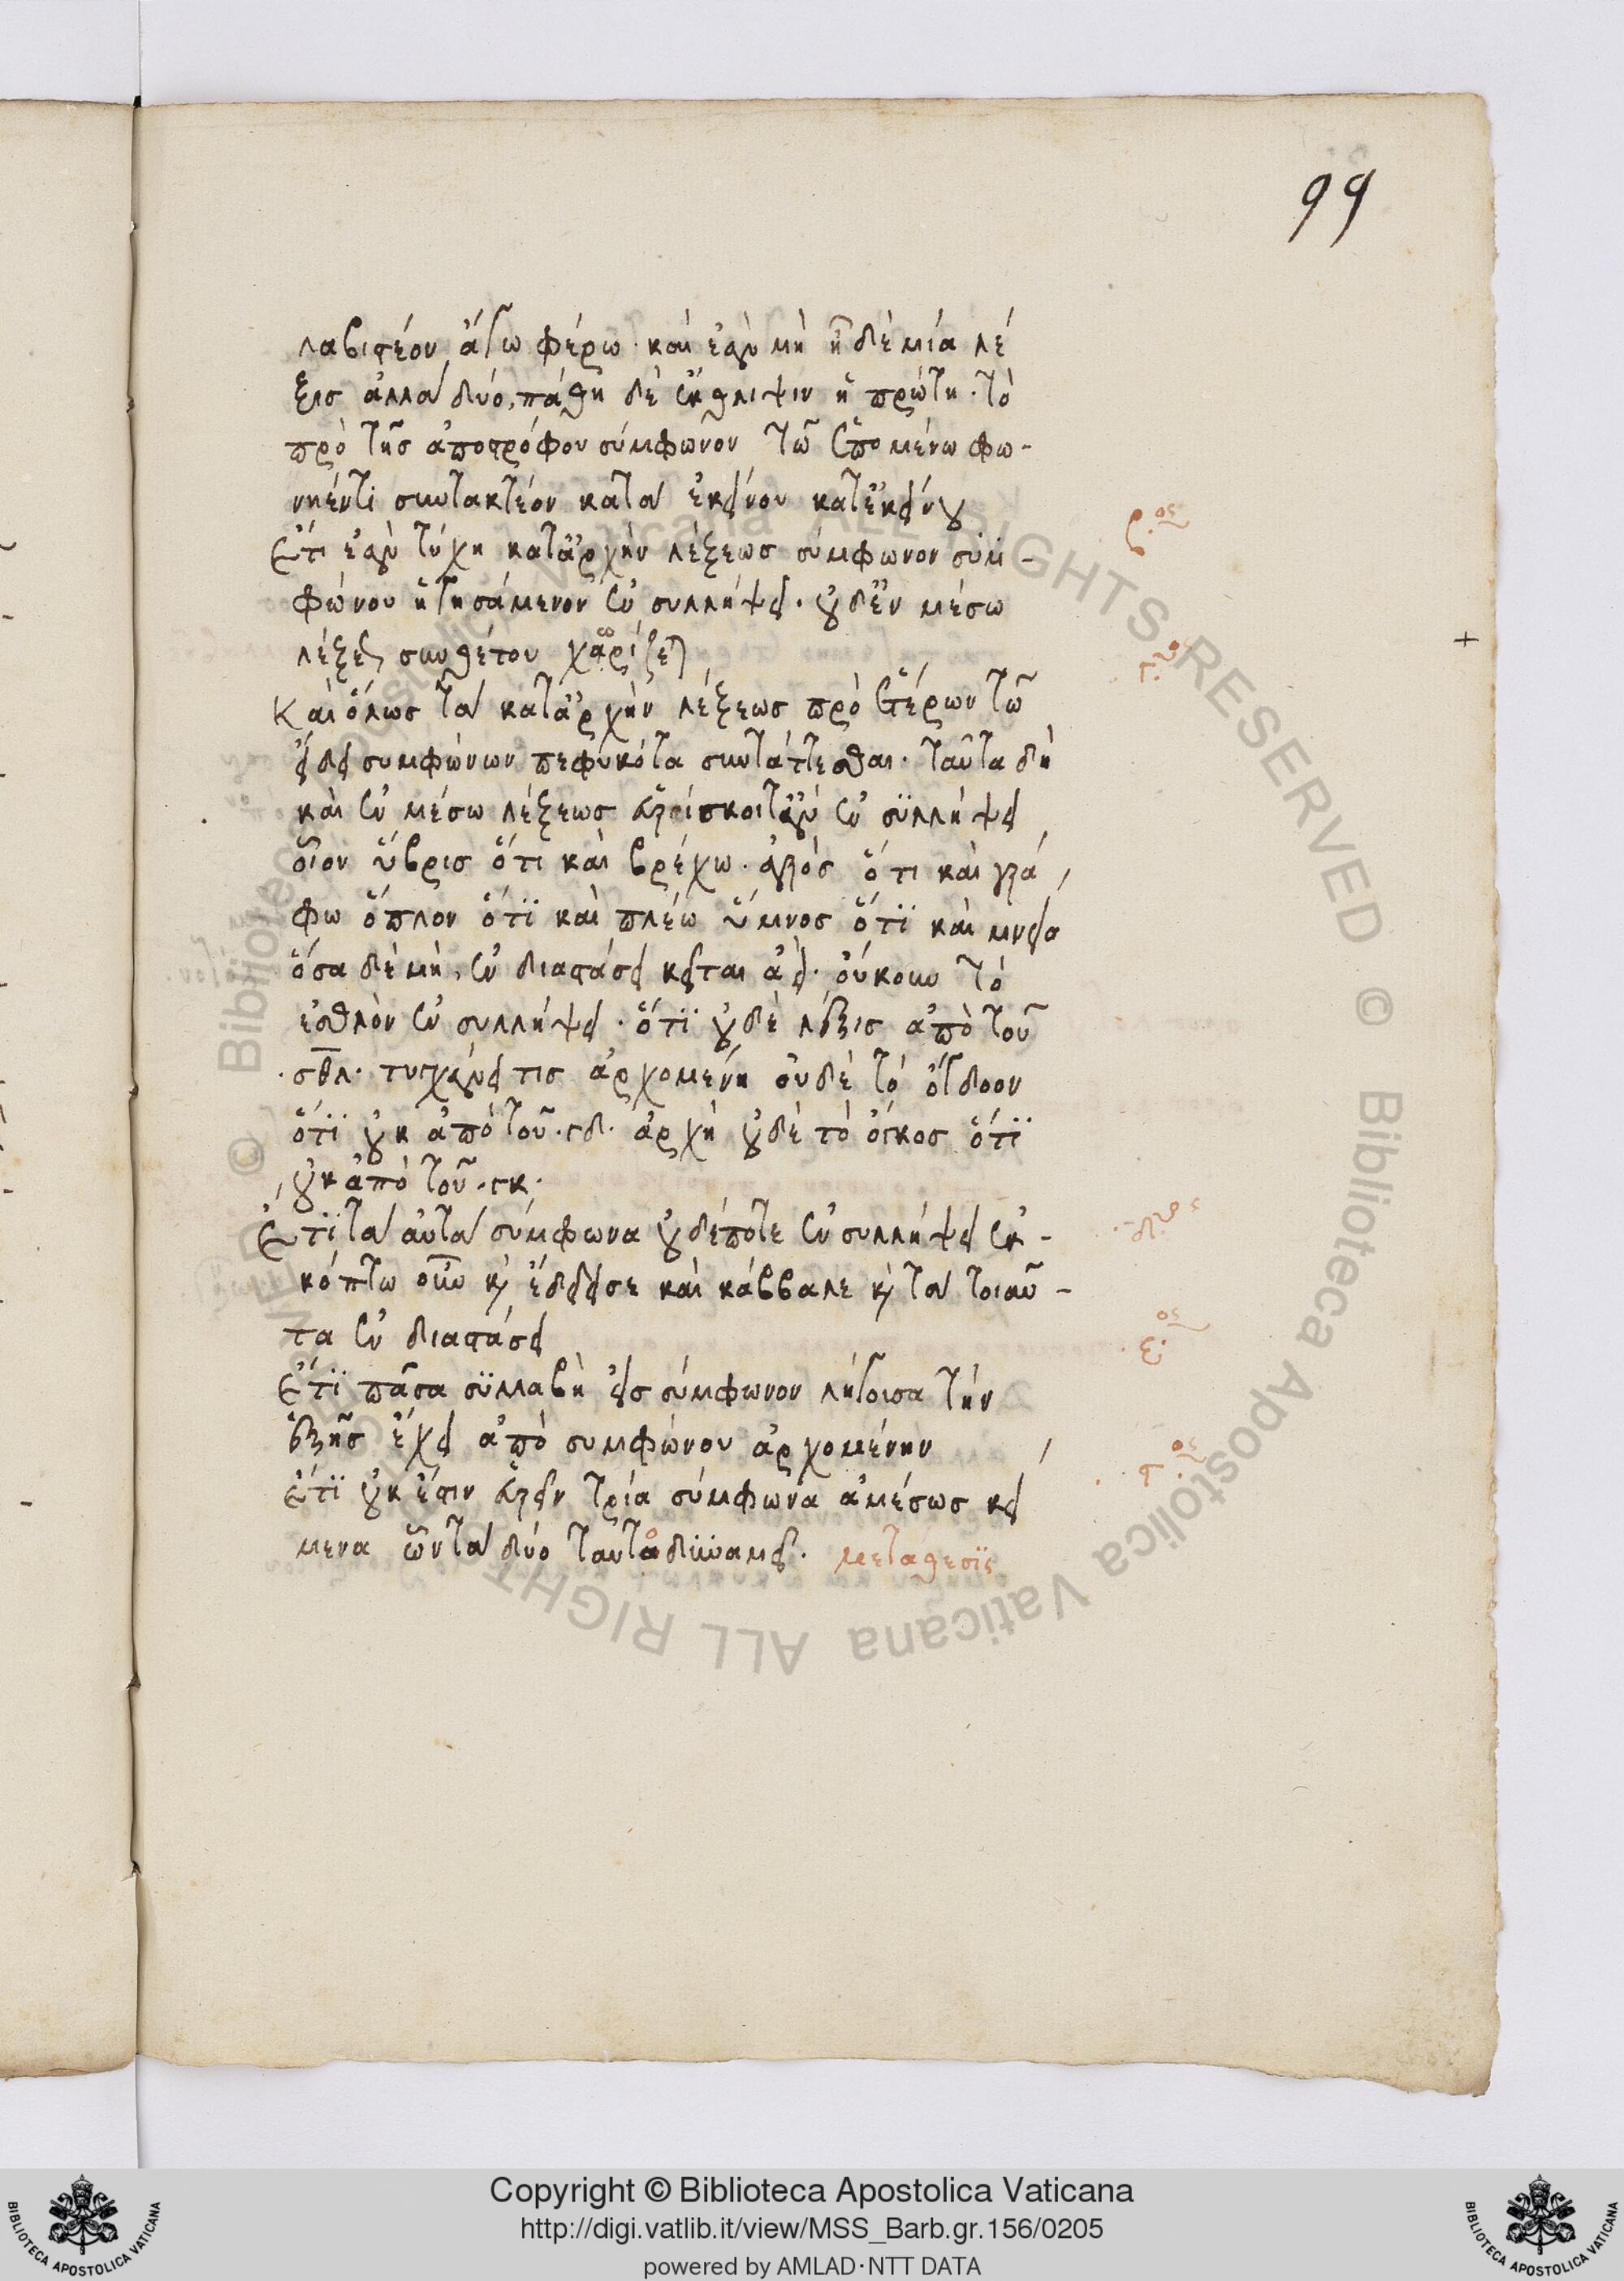 99
λαβιστέον ἄγω φέρω· καὶ ἐὰν μὴ ᾖ δὲ μία λέ
ξις ἀλλὰ δύο, πάθη δὲ ἔκθλιψιν ἡ πρώτη· τὸ
πρὸ τῆς ἀποστρόφου σύμφωνον τῶ ἑπομένω φω-
νήεντι συντακτέον κατὰ ἐκείνου κατ' ἐκείνου
Ἔτι ἐὰν τύχη κατ' ἀρχὴν λέξεως σύμφωνον συμ-
φώνου ἡγησάμενον ἐν συλλήψει· οὐδ' ἐν μέσω
λέξεως συνθέτου χωρίζεται
Καὶ ὅλως τὰ κατ' ἀρχὴν λέξεως πρὸ ἑτέρων τῶ
εἴδει συμφώνων πεφυκότα συντάττεσθαι· ταῦτα δὴ
καὶ ἐν μέσω λέξεως εὑρίσκοιτ' ἂν ἐν συλλήψει
οἷον ὕβρις ὅτι καὶ βρέχω· ἀγρὸς ὅτι καὶ γρά
φω ὅπλον ὅτι καὶ πλέω ὕμνος ὅτι καὶ μνεία
ὅσα δὲ μὴ, ἐν διαστάσει κεῖται ἀεί· οὔκουν τὸ
ἐσθλὸν ἐν συλλήψει· ὅτι οὐδὲ λέξις ἀπὸ τοῦ
·σθλ· τυγχάνει τις ἀρχομένη οὐδὲ τὸ ὄγδοον
ὅτι οὐκ ἀπὸ τοῦ ·γδ· ἀρχὴ οὐδὲ τὸ ὄγκος ὅτι
οὐκ ἀπὸ τοῦ ·γκ·
Ἔτι τὰ αὐτὰ σύμφωνα οὐδέποτε ἐν συλλήψει ἐκ-
κόπτω οὖν καὶ ἔδδεισε καὶ κάββαλε καὶ τὰ τοιαῦ-
τα ἐν διαστάσει
Ἔτι πᾶσα συλλαβὴ εἰς σύμφωνον λήγουσα τὴν
ἑξῆς ἔχει ἀπὸ συμφώνου ἀρχομένην
ἔτι οὐκ ἔστιν εὑρεῖν τρία σύμφωνα ἀμέσως κεί
μενα ὧν τὰ δύο ταὐτοδύναμα. μετάθεσις
β·ος
γ·ος
δ·ος
ε·ος
ς·ος
+
Copyright © Biblioteca Apostolica Vaticana
http://digi.vatlib.it/view/MSS_Barb.gr.156/0205
powered by AMLAD·NTT DATA
BIBLIOTECA APOSTOLICA VATICANA
BIBLIOTECA APOSTOLICA VATICANA
© Biblioteca Apostolica Vaticana ALL RIGHTS RESERVED © Biblioteca Apostolica Vaticana ALL RIGHTS RESERVED